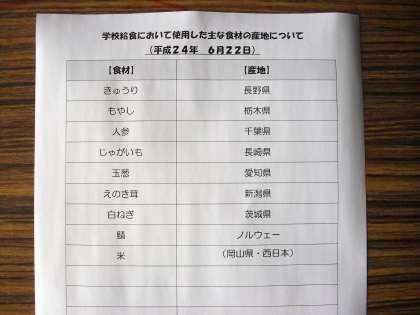 学校給食において使用した主な食材の産地について
(平成24年 6月22日)
【食材】 【産地】
きゅうり 長野県
もやし 栃木県
人参 千葉県
じゃがいも 長崎県
玉葱 愛知県
えのき茸 新潟県
白ねぎ 茨城県
鯖 ノルウェー
米 (岡山県・西日本)